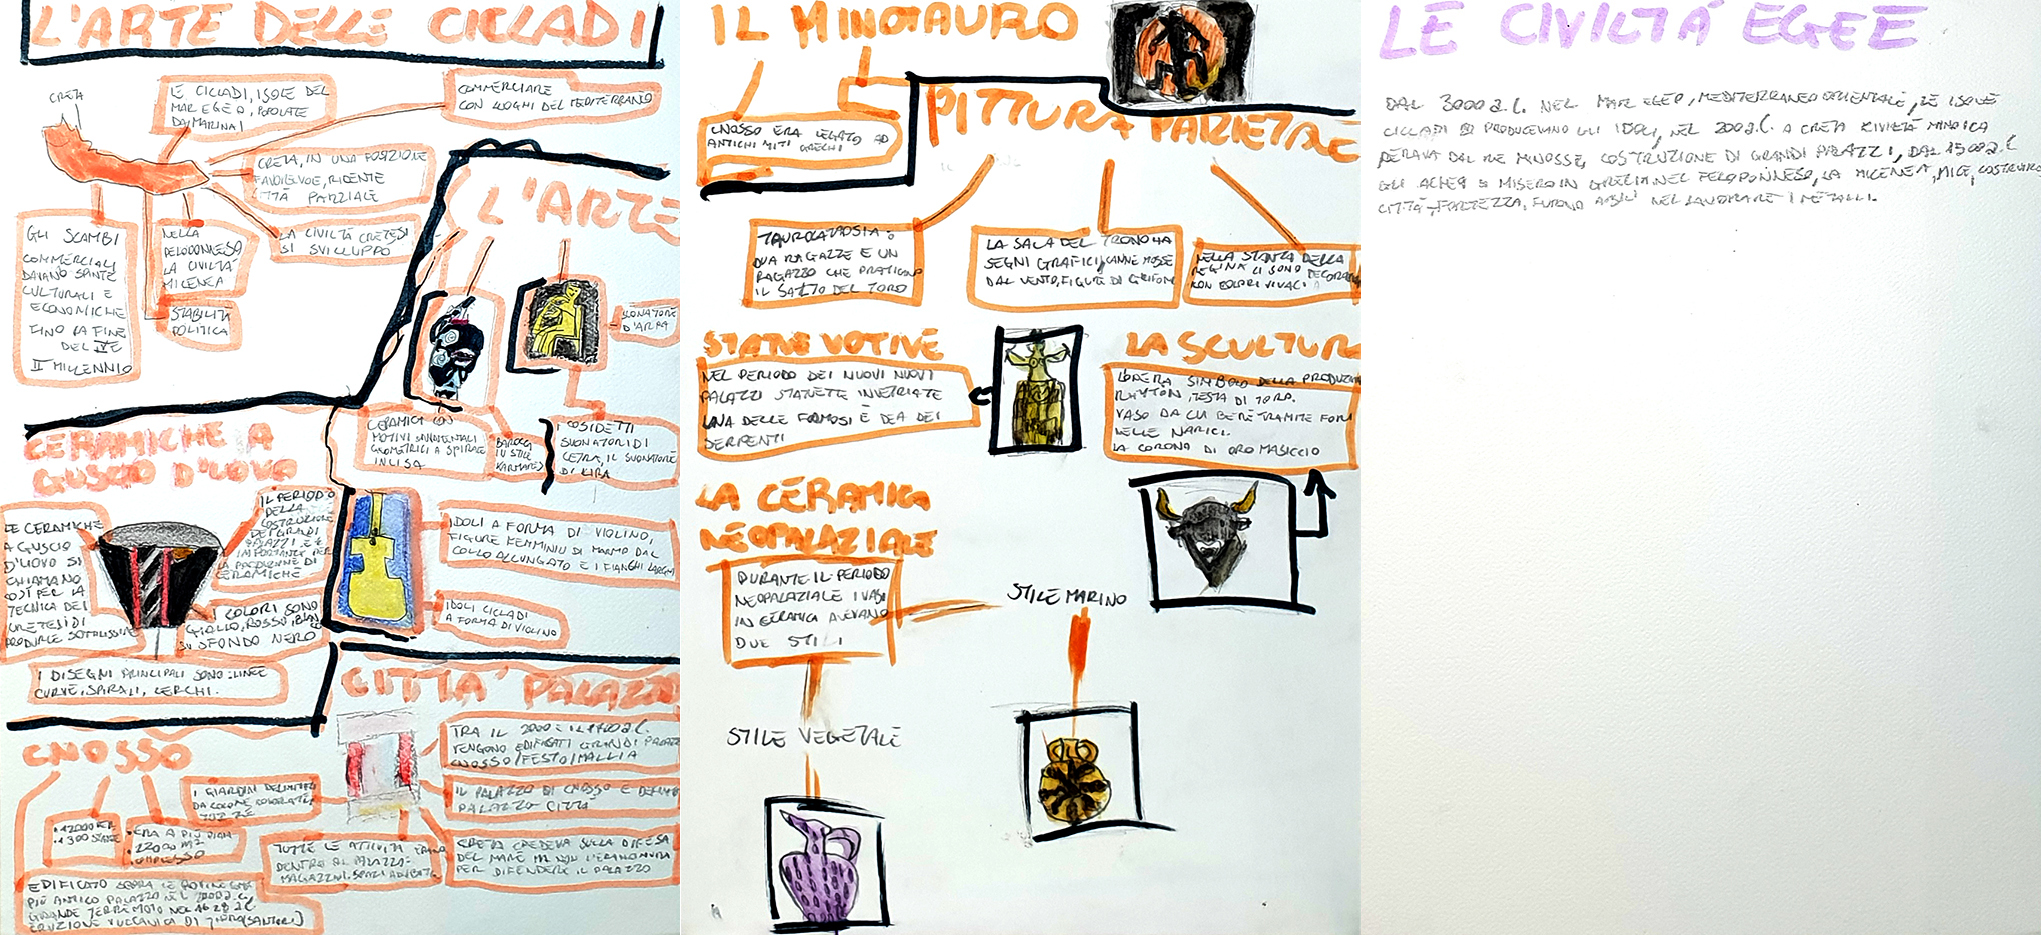 L'ARTE DELLE CICLADI
CRETA
LE CICLADI, ISOLE DEL
MAR EGEO, POPOLATE
DA MARINAI
COMMERCIARE
CON LUOGHI DEL MEDITERRANIO
CRETA, IN UNA POSIZIONE
FAVOREVOE, RIDENTE
CITTÀ PARZIALE
GLI SCAMBI
COMMERCIALI
DAVANO SPINTE
CULTURALI E
ECONOMICHE
FINO LA FINE
DEL IVE
II MILLENNIO
NELLA
PELOPONNESO
LA CIVILTÀ
MICENEA
LA CIVILTÀ CRETESI
SI SVILUPPO
STABILITÀ
POLITICA
L'ARTE
SUONATORE
D'ARPA
CERAMICA CON
MOTIVI ORNAMENTALI
GEOMETRICI A SPIRALE
INCISA
BAROCCA
IN STILE
KAMARES
I COSIDETTI
SUONATORI DI
CETRA, IL SUONATORE
DI LIRA
CERAMICHE A
GUSCIO D'UOVO
LE CERAMICHE
A GUSCIO
D'UOVO SI
CHIAMANO
COSÌ PER LA
TECNICA DEI
CRETESI DI
PRODURLE SOTTILISSIME
IL PERIODO
DELLA
COSTRUZIONE
DEI GRANDI
PALAZZI, E È
IMPORTANTE PER
LA PRODUZIONE DI
CERAMICHE
I COLORI SONO
GIALLO, ROSSO, BIANCO
SU SFONDO NERO
I DISEGNI PRINCIPALI SONO: LINEE
CURVE, SPIRALI, CERCHI.
IDOLI A FORMA DI VIOLINO,
FIGURE FEMMINILI DI MARMO DAL
COLLO ALLUNGATO E I FIANCHI LARGHI
IDOLI CICLADI
A FORMA DI VIOLINO
CITTÀ PALAZZO
TRA IL 2000 E IL 1700 a.C.
VENGONO EDIFICATI GRANDI PALAZZI
CNOSSO/FESTO/MALLIA
IL PALAZZO DI CNOSSO È DEFINITO
PALAZZO CITTÀ
CRETA CREDEVA SULLA DIFESA
DEL MARE MA NON C'ERANO MURA
PER DIFENDERE IL PALAZZO
CNOSSO
I GIARDINI DELIMITATI
DA COLONE COLORATE
• 1300 STANZE
• ERA A PIÙ PIANI
• 22000 M2
• COMPLESSO
TUTTE LE ATTIVITÀ ERANO
DENTRO AL PALAZZO:
MAGAZZINI, SPAZI ADIBITI
EDIFICATO SOPRA LE ROVINE DEL
PIÙ ANTICO PALAZZO NEL 2000 a.C.
GRANDE TERREMOTO NEL 1628 a.C.
ERUZIONE VULCANICA DI THERA (SANTORINI)
IL MINOTAURO
CNOSSO ERA LEGATO AD
ANTICHI MITI GRECHI
PITTURA PARIETALE
TAUROCATAPSIA:
DUA RAGAZZE E UN
RAGAZZO CHE PRATICANO
IL SALTO DEL TORO
LA SALA DEL TRONO HA
SEGNI GRAFICI, CANNE MOSSE
DAL VENTO, FIGURE DI GRIFONI
NELLA STANZA DELLA
REGINA CI SONO DECORAZIONI
CON COLORI VIVACI
STATUE VOTIVE
NEL PERIODO DEI NUOVI NUOVI
PALAZZI STATUETTE INVETRIATE
UNA DELLE FAMOSI È DEA DEI
SERPENTI
LA SCULTURA
L'OPERA SIMBOLO DELLA PRODUZIONE
RHYTON, TESTA DI TORO.
VASO DA CUI BERE TRAMITE FORI
DELLE NARICI.
LA CORONA DI ORO MASICCIO
LA CERAMICA
NEOPALAZIALE
DURANTE IL PERIODO
NEOPALAZIALE I VASI
IN CERAMICA AVEVANO
DUE STILI
STILE MARINO
STILE VEGETALE
LE CIVILTÀ EGEE
DAL 3000 a.C. NEL MAR EGEO, MEDITERRANEO ORIENTALE, LE ISOLE
CICLADI PRODUCEVANO GLI IDOLI, NEL 200 a.C. A CRETA CIVILTÀ MINOICA
DAL RE MINOSSE, COSTRUZIONE DI GRANDI PALAZZI, DAL 1500 a.C
GLI ACHEI SI MISERO IN GRECIA NEL PELOPONNESO, LA MICENEA, MICE, COSTRUIRONO
CITTÀ-FORTEZZA, FURONO ABILI NEL LAVORARE I METALLI.